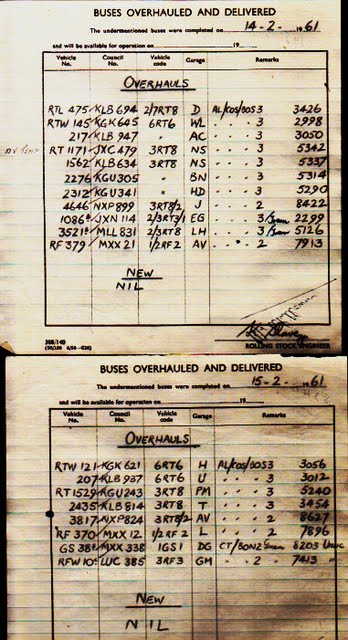 BUSES OVERHAULED AND DELIVERED
The undermentioned buses were completed on 14-2- 1961
and will be available for operation on 19
Vehicle No. Council No. Vehicle code Garage Remarks
OVERHAULS
RTL 475 KLB 694 2/7RT8 D AL/KOS/BOS 3 3426
RTW 145 KGK 645 6RT6 WL . . . 3 2998
217 KLB 947 " AC . . . 3 3050
RT 1171 JXC 479 3RT8 NS . . . 3 5342
1562 KLB 634 3RT8 NS . . . 3 5337
2276 KGU 305 " BN . . . 3 5314
2312 KGU 341 " HD . . . 3 5290
4646 NXP 899 3RT8/2 J . . . 2 8422
1086 JXN 114 2/3RT3/1 EG . . . 3/ 2299
3521 MLL 831 2/3RT8 LH . . . 3/ 5126
RF 379 MXX 21 1/2RF2 AV . . . 2 7913
NEW
NIL
ROLLING STOCK ENGINEER
BUSES OVERHAULED AND DELIVERED
The undermentioned buses were completed on 15-2- 1961
and will be available for operation on 19
Vehicle No. Council No. Vehicle code Garage Remarks
OVERHAULS
RTW 121 KGK 621 6RT6 H AL/KOS/BOS 3 3056
207 KLB 937 6RT6 U . . . 3 3012
RT 1529 KGU 243 3RT8 PM . . . 3 5240
2435 KLB 814 3RT8 T . . . 3 3454
3817 NXP 824 3RT8/2 AV . . . 2 8627
RF 370 MXX 12 1/2RF2 L . . . 2 7896
GS 38 MXX 338 1GS1 DG CT/BON2 Green 8203
RFW 10 LUC 385 3RF3 GM " " 2 7413 "
NEW
NIL